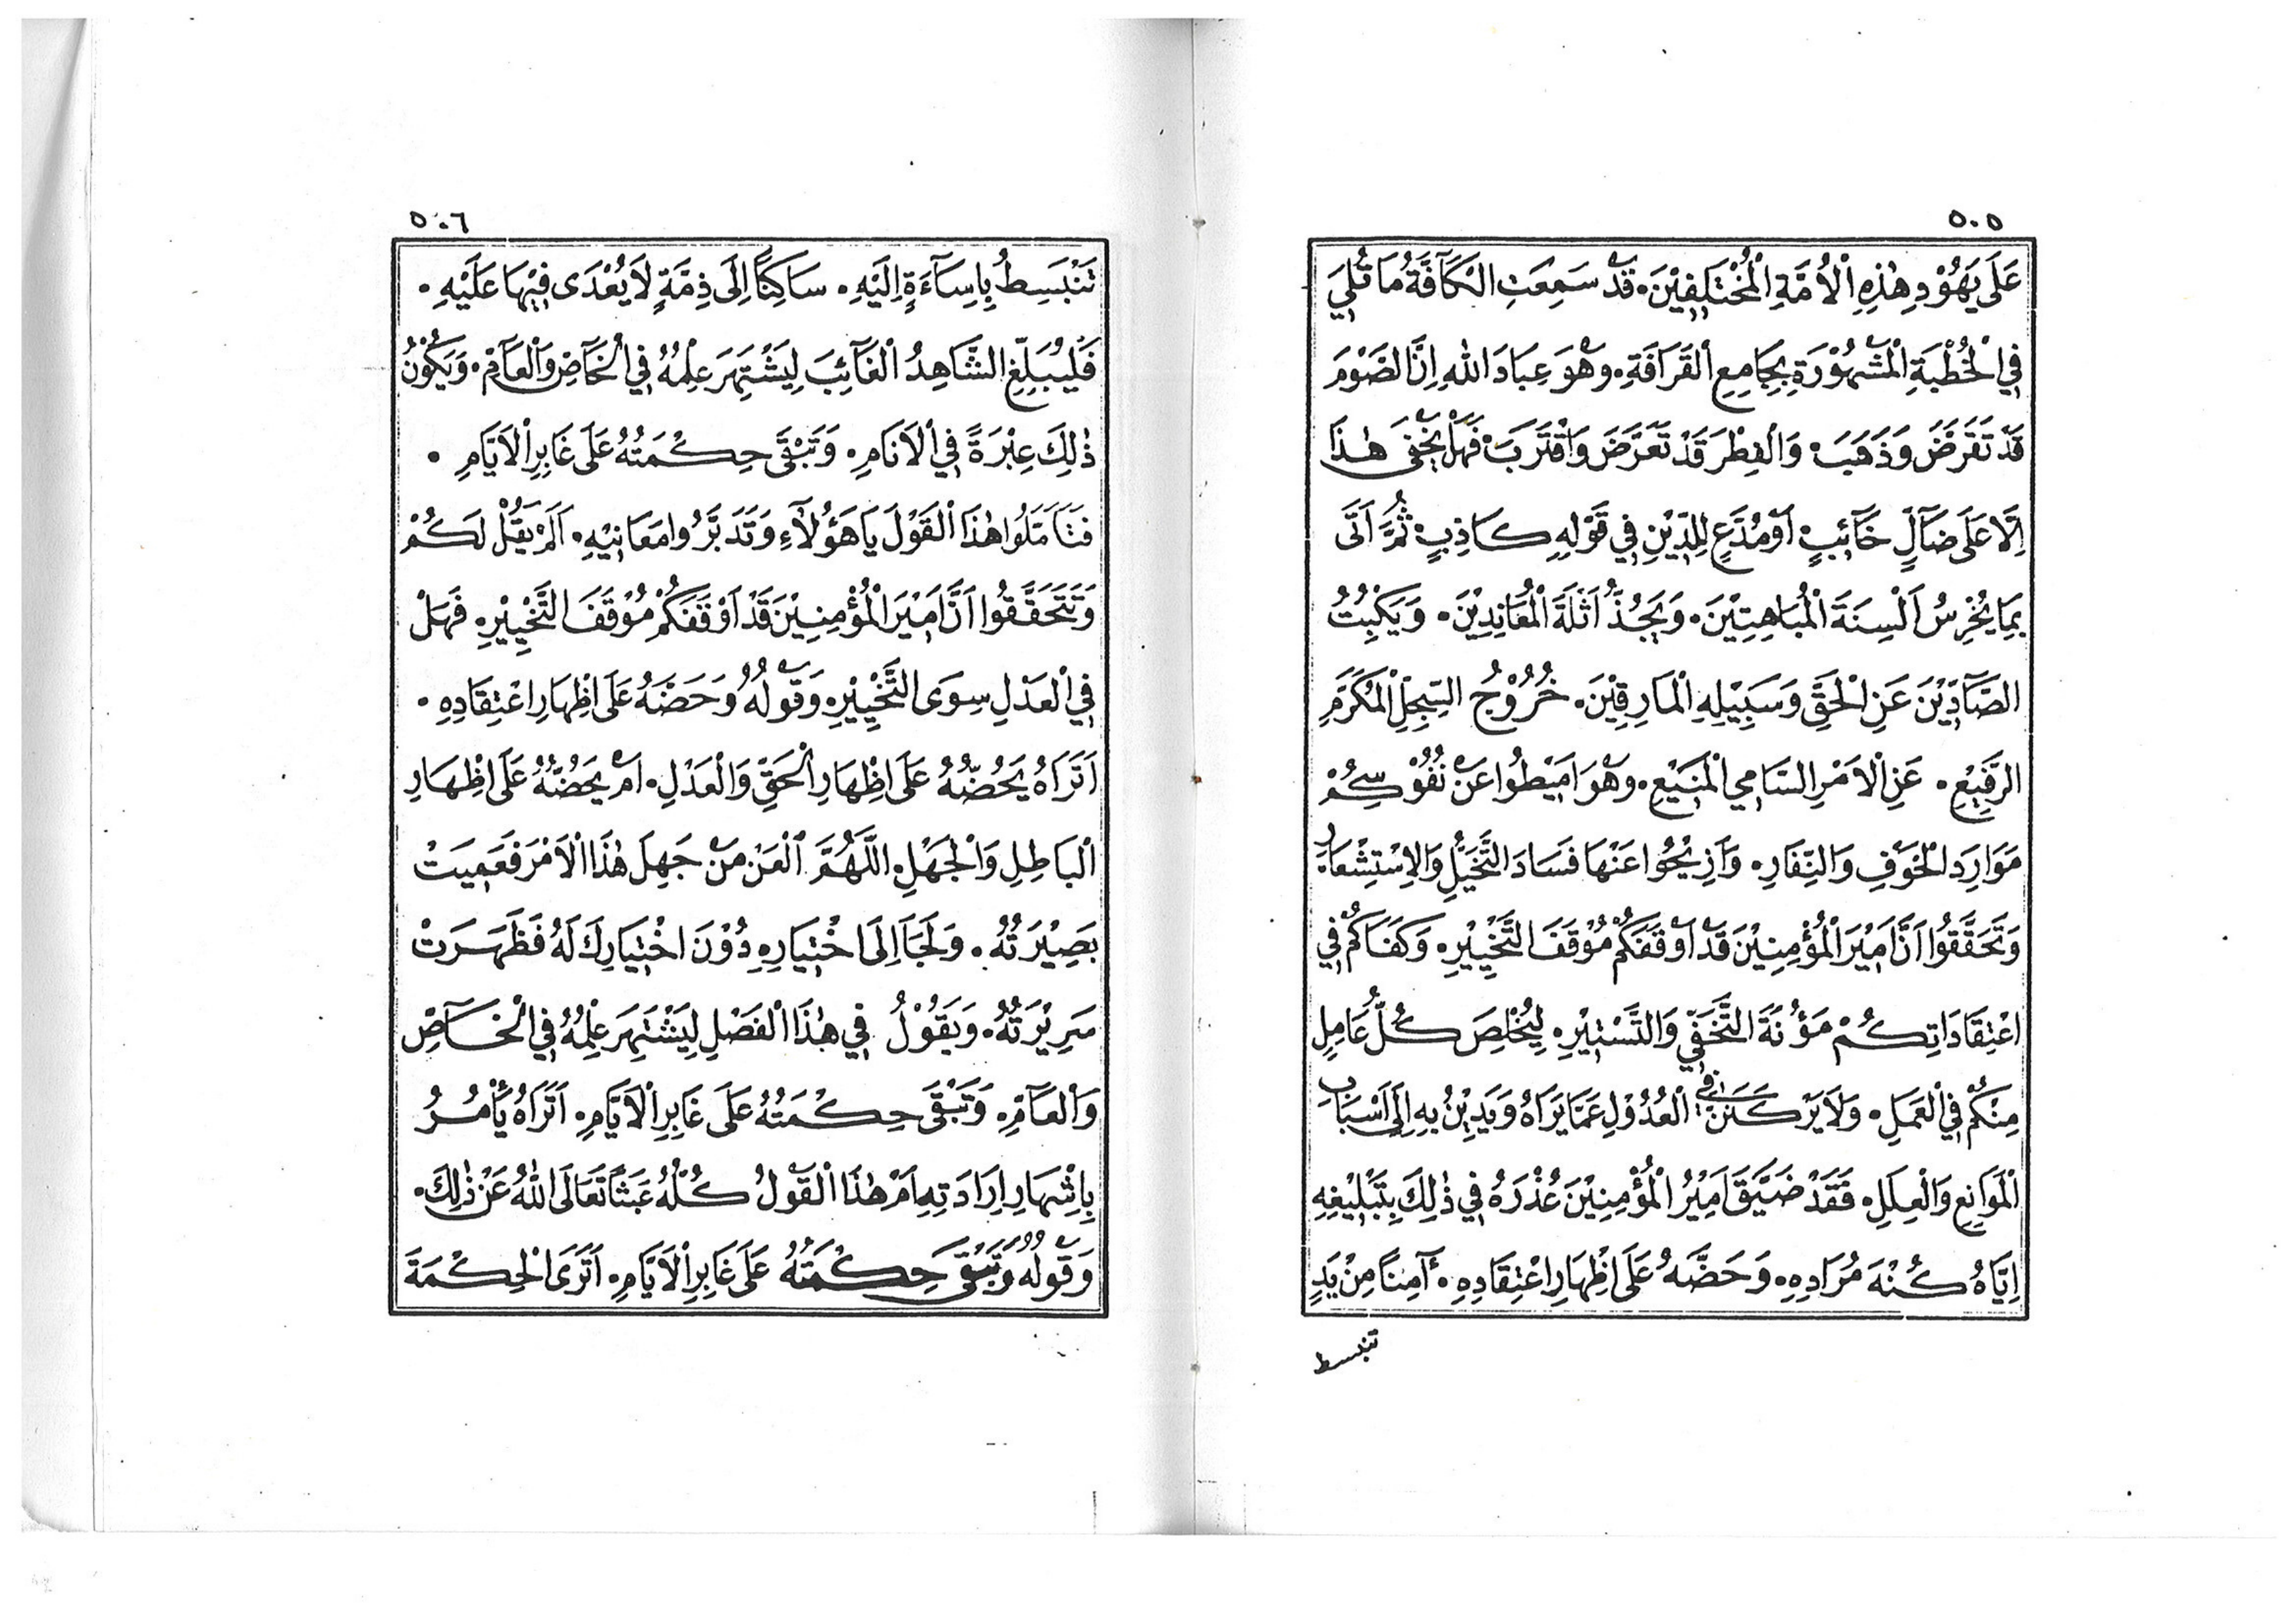 ٥٠٥
عَلَى يَهُوْدِ هٰذِهِ الْأُمَّةِ الْمُخْتَلِفِيْنَ. قَدْ سَمِعَتِ الْكَآفَّةُ مَا تُلِيَ
فِي الْخُطْبَةِ الْمَشْهُوْرَةِ بِجَامِعِ الْقَرَافَةِ. وَهُوَ عِبَادَ اللهِ اِنَّ الصَّوْمَ
قَدْ تَقَرَّضَ وَذَهَبَ وَالْفِطْرَ قَدْ تَعَرَّضَ وَاقْتَرَبَ فَهَلْ يَخْفٰى هٰذَا
اِلَّا عَلَى ضَآلٍّ خَآئِبٍ اَوْ مُدَّعٍ لِلدِّيْنِ فِي قَوْلِهِ كَاذِبٍ ثُمَّ اَتَى
بِمَا يُخْرِسُ اَلْسِنَةَ الْمُبَاهِتِيْنَ. وَيَجُذُّ اَثْلَةَ الْمُعَانِدِيْنَ. وَيَكْبِتُ
الصَّآدِّيْنَ عَنِ الْحَقِّ وَسَبِيْلِهِ الْمَارِقِيْنَ. خُرُوْجُ السِّجِلِّ الْمُكَرَّمِ
الرَّفِيْعِ. عَنِ الْاَمْرِ السَّامِي الْمَنِيْعِ. وَهُوَ اَمِيْطُوا عَنْ نُفُوْسِكُمْ
مَوَارِدَ الْخَوْفِ وَالنِّفَارِ. وَاَزِيْحُوا عَنْهَا فَسَادَ التَّخَيُّلِ وَالْاِسْتِشْعَارِ
وَتَحَقَّقُوا اَنَّ اَمِيْرَ الْمُؤْمِنِيْنَ قَدْ اَوْقَفَكُمْ مُوْقَفَ التَّخْيِيْرِ. وَكَفَاكُمْ فِي
اعْتِقَادَاتِكُمْ مَؤُنَةَ التَّخَفِّي وَالتَّسْتِيْرِ. لِيُخْلِصَ كُلُّ عَامِلٍ
مِنْكُمْ فِي الْعَمَلِ. وَلَا يَرْكَنَنَّ فِي الْعُدُوْلِ عَمَّا يَرَاهُ وَيَدِيْنُ بِهِ اِلَى اَسْبَابِ
الْمَوَانِعِ وَالْعِلَلِ. فَقَدْ ضَيَّقَ اَمِيْرُ الْمُؤْمِنِيْنَ عُذْرَهُ فِي ذٰلِكَ بِتَبْلِيْغِهِ
اِيَّاهُ كُنْهَ مُرَادِهِ. وَحَضَّهُ عَلَى اِظْهَارِ اعْتِقَادِهِ. آمِنًا مِنْ يَدٍ
تنبسط
٥٠٦
تَنْبَسِطُ بِاِسَآءَةٍ اِلَيْهِ. سَاكِنًا اِلَى ذِمَّةٍ لَا يُعْدَى فِيْهَا عَلَيْهِ.
فَلْيُبَلِّغِ الشَّاهِدُ الْغَآئِبَ لِيَشْتَهِرَ عِلْمُهُ فِي الْخَآصِّ وَالْعَآمِّ. وَيَكُوْنُ
ذٰلِكَ عِبْرَةً فِي الْاَنَامِ. وَتَبْقَى حِكْمَتُهُ عَلَى غَابِرِ الْاَيَّامِ.
فَتَأَمَّلُوا هٰذَا الْقَوْلَ يَا هَؤُلَآءِ وَتَدَبَّرُوا مَعَانِيْهِ. اَلَمْ يَقُلْ لَكُمْ
وَتَتَحَقَّقُوا اَنَّ اَمِيْرَ الْمُؤْمِنِيْنَ قَدْ اَوْقَفَكُمْ مُوْقَفَ التَّخْيِيْرِ. فَهَلْ
فِي الْعَدْلِ سِوَى التَّخْيِيْرِ. وَقَوْلُهُ وَحَضَّهُ عَلَى اِظْهَارِ اعْتِقَادِهِ.
اَتَرَاهُ يَحُضُّهُ عَلَى اِظْهَارِ الْحَقِّ وَالْعَدْلِ. اَمْ يَحُضُّهُ عَلَى اِظْهَارِ
الْبَاطِلِ وَالْجَهْلِ. اللّٰهُمَّ الْعَنْ مَنْ جَهِلَ هٰذَا الْاَمْرَ فَعَمِيَتْ
بَصِيْرَتُهُ. وَلَجَاَ اِلَى اخْتِيَارِهِ دُوْنَ اخْتِيَارِكَ لَهُ فَظَهَرَتْ
سَرِيْرَتُهُ. وَيَقُوْلُ فِي هٰذَا الْفَصْلِ لِيَشْتَهِرَ عِلْمُهُ فِي الْخَآصِّ
وَالْعَآمِّ. وَتَبْقَى حِكْمَتُهُ عَلَى غَابِرِ الْاَيَّامِ. اَتَرَاهُ يَأْمُرُ
بِاِشْهَارِ اِرَادَتِهِ اَمْ هٰذَا الْقَوْلُ كُلُّهُ عَبَثًا تَعَالَى اللهُ عَنْ ذٰلِكَ.
وَقَوْلُهُ وَتَبْقَى حِكْمَتُهُ عَلَى غَابِرِ الْاَيَّامِ. اَتَرَى الْحِكْمَةَ